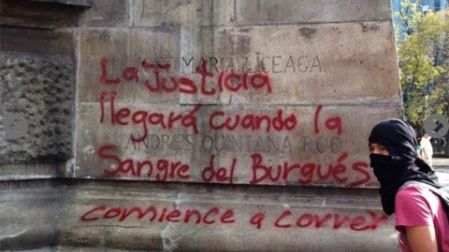 MARIA LICEAGA
La Justicia
llegará cuando la
ANDRES QUINTANA ROO
Sangre del Burgués
comience a correr